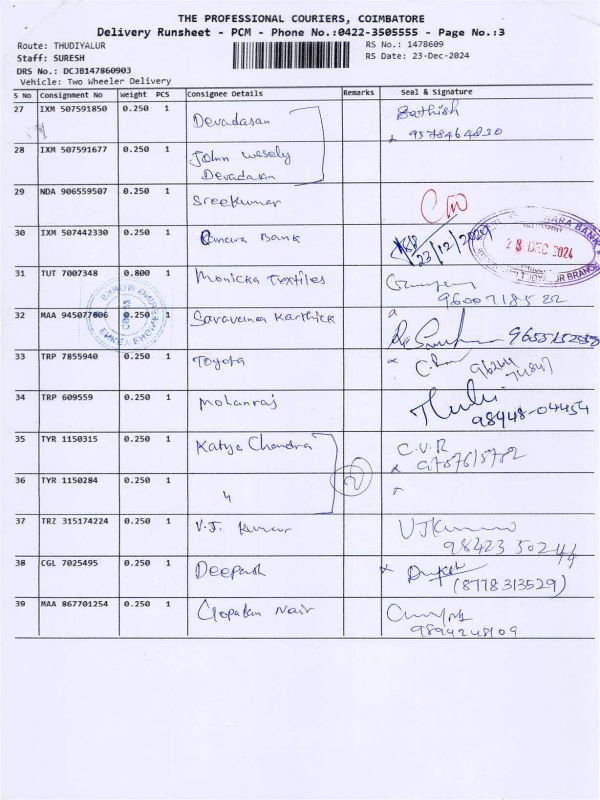 THE PROFESSIONAL COURIERS, COIMBATORE
Delivery Runsheet - PCM - Phone No.:0422-3505555 - Page No.:3
Route: THUDIYALUR RS No.: 1478609
Staff: SURESH RS Date: 23-Dec-2024
DRS No.: DCJB147860903
Vehicle: Two Wheeler Delivery
S No Consignment No Weight PCS Consignee Details Remarks Seal & Signature
27 IXM 507591850 0.250 1 Devadasan Sathish
9578464830
28 IXM 507591677 0.250 1 John Wesely
Devadasan
29 NDA 906559507 0.250 1 Sreekumar
30 IXM 507442330 0.250 1 Canara Bank 23/12/2024
23 DEC 2024
31 TUT 7007348 0.800 1 Monicka Textiles
9600718522
32 MAA 945077806 0.250 1 Saravana Karthick
33 TRP 7855940 0.250 1 Toyota
34 TRP 609559 0.250 1 Mohanraj
98448-04454
35 TYR 1150315 0.250 1 Katya Chandra C.V.R
36 TYR 1150284 0.250 1 " 2
37 TRZ 315174224 0.250 1 V.J. Kumar VJKumar
98423 50244
38 CGL 7025495 0.250 1 Deepash
(8778313529)
39 MAA 867701254 0.250 1 Gopalan Nair